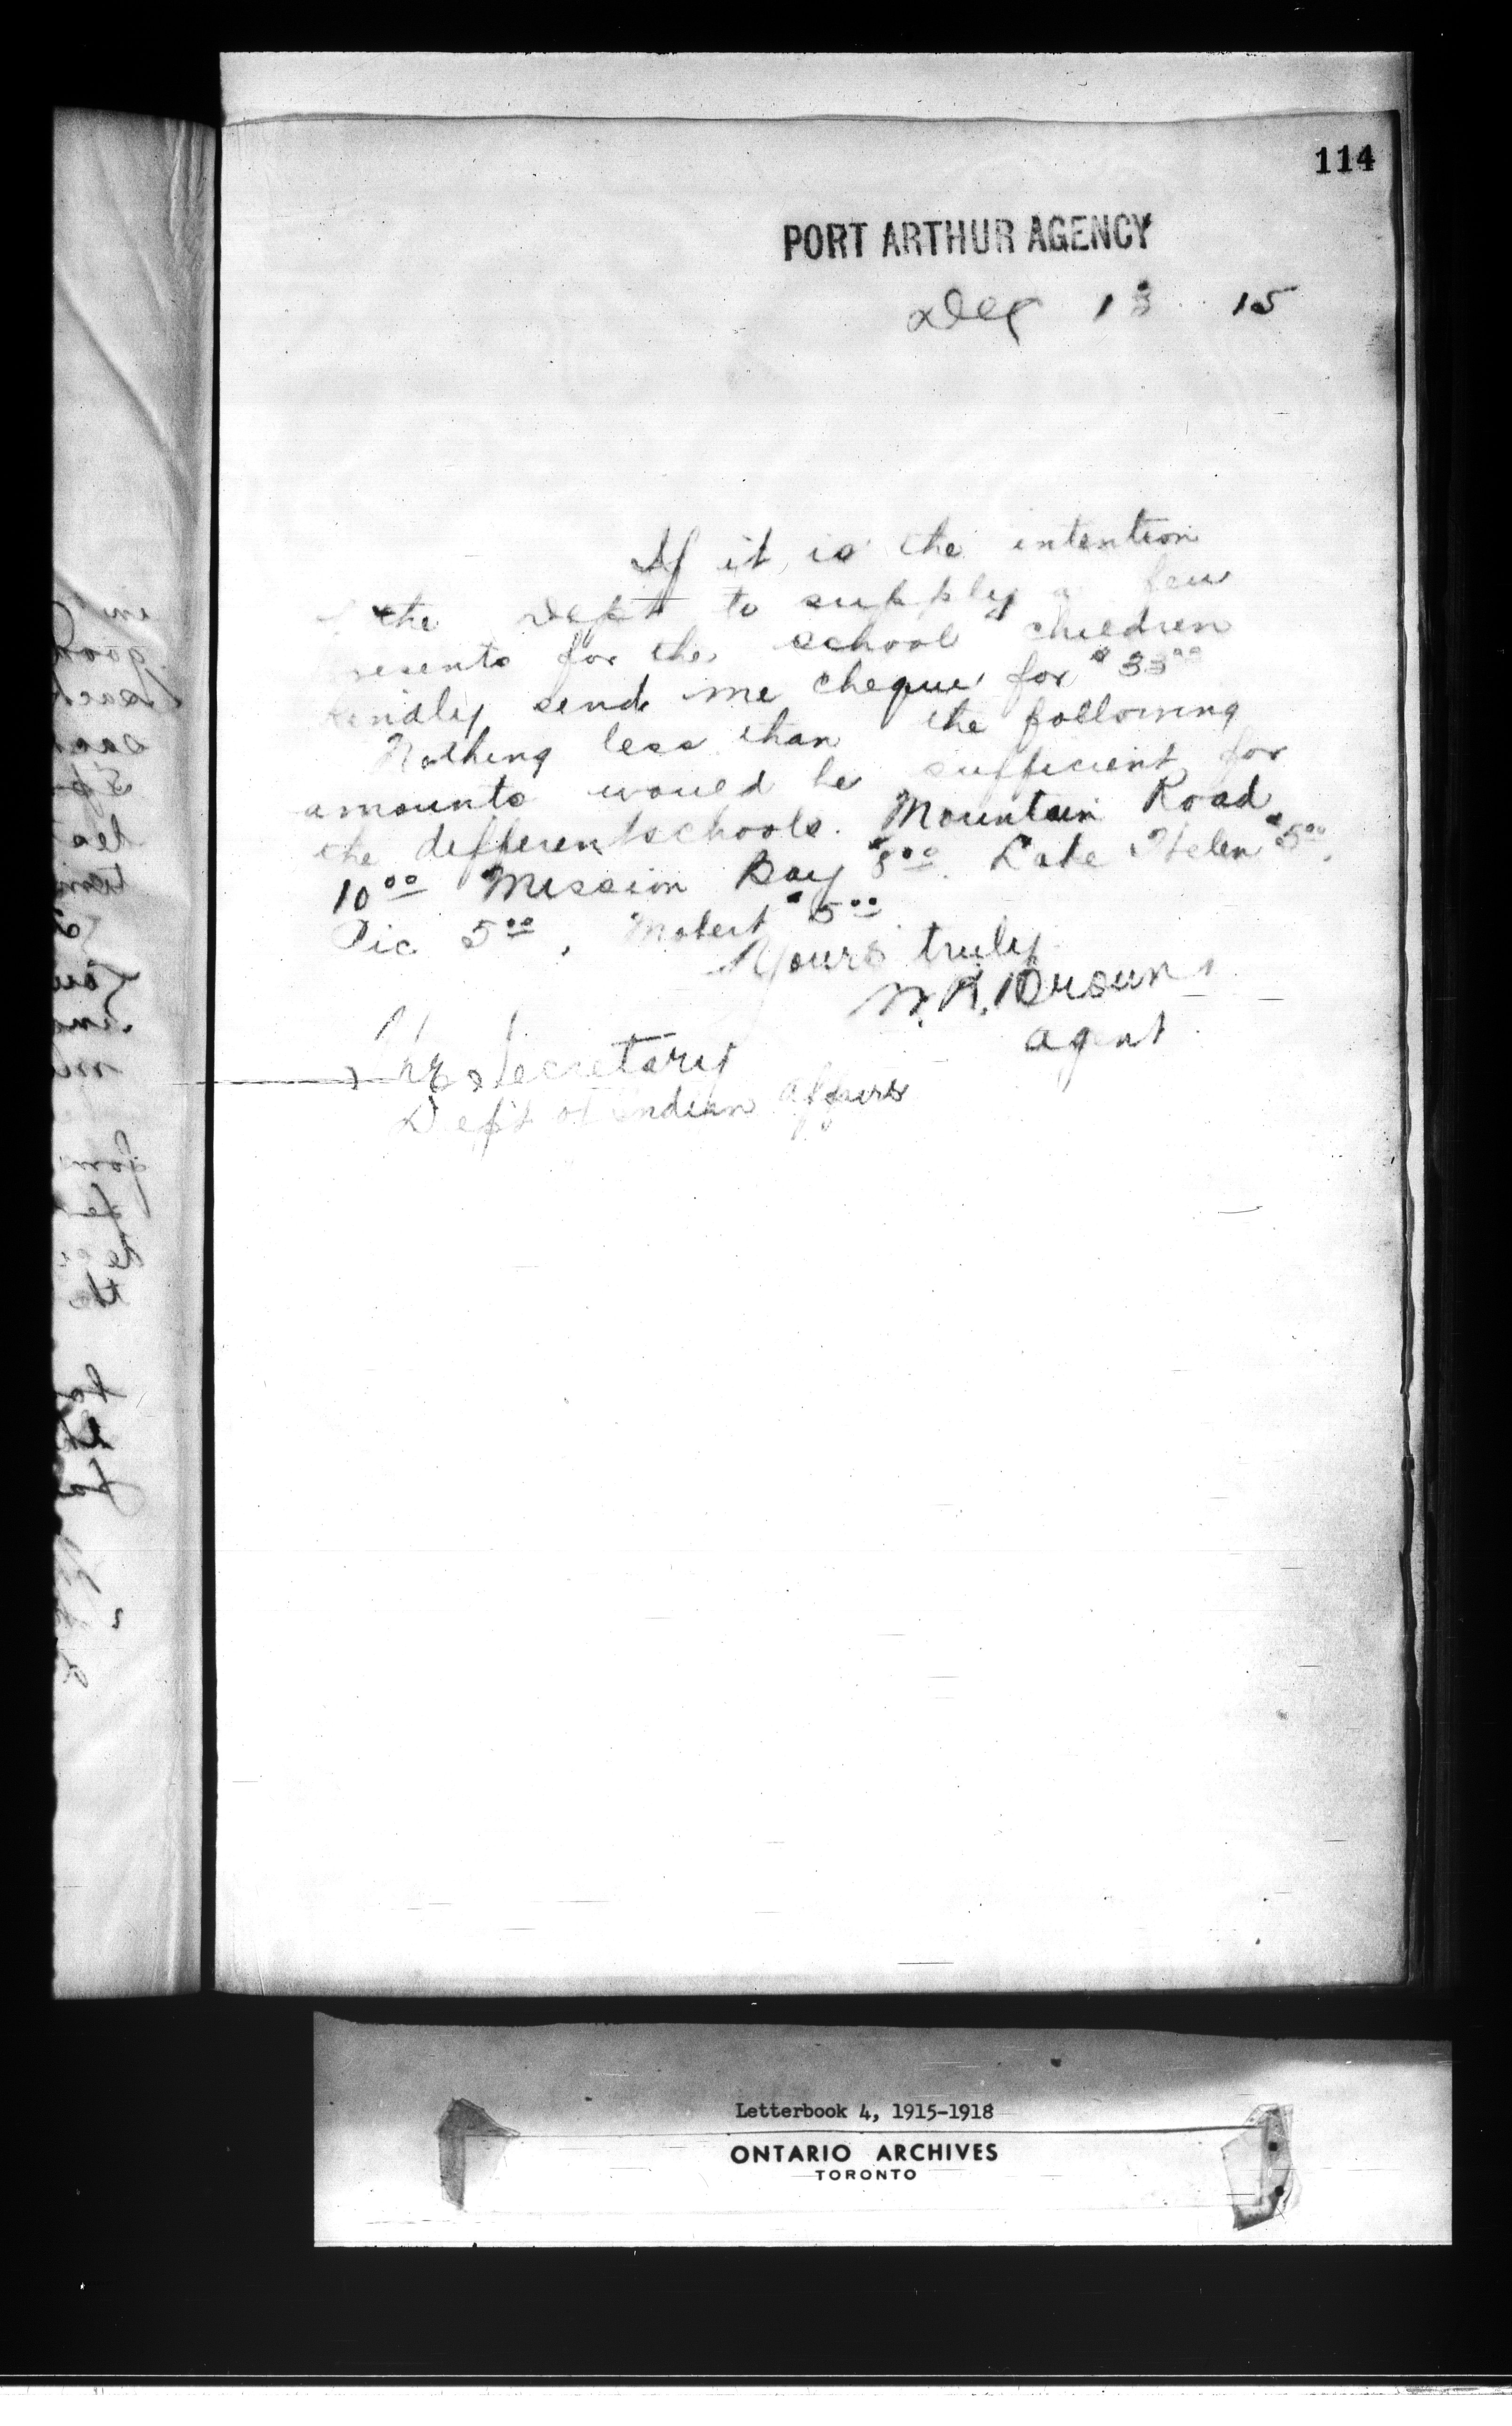 114
PORT ARTHUR AGENCY
Dec 13 15
If it is the intention
the Dept to supply a few
presents for the school children
kindly send me cheque for $33.00
Nothing less than the following
amounts would be sufficient for
the different schools. Mountain Road
10.00 Mission Bay $8.00. Lake Helen $5.00,
Pic 5.00, Mobert $5.00
Yours truly
W. R. Brown
agent
The Secretary
Dept of Indian Affairs
Letterbook 4, 1915-1918
ONTARIO ARCHIVES
TORONTO